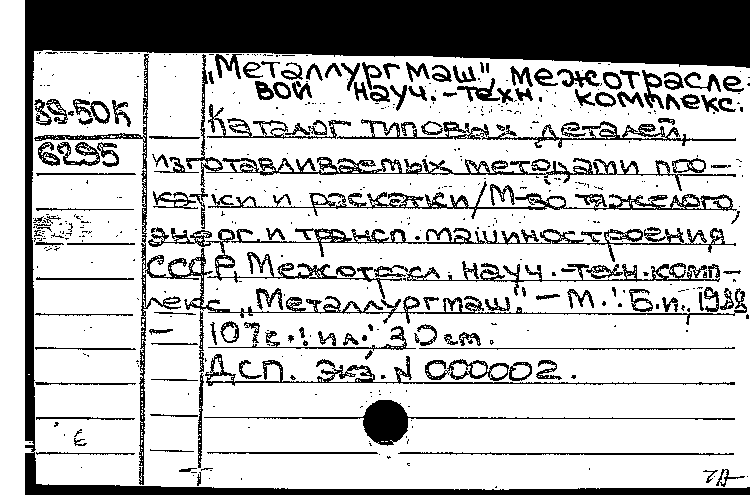 „Металлургмаш", межотрасле-
вой науч.-техн. комплекс.
89-50к
Каталог типовых деталей,
6295
изготавливаемых методами про-
катки и раскатки/М-во тяжелого,
энерг. и трансп. машиностроения
СССР, Межотрасл. науч.-техн. комп-
лекс „Металлургмаш". – М.: Б.и., 1988
– 107с.: ил.; 30 см.
ДСП. Экз. N 000002.
6